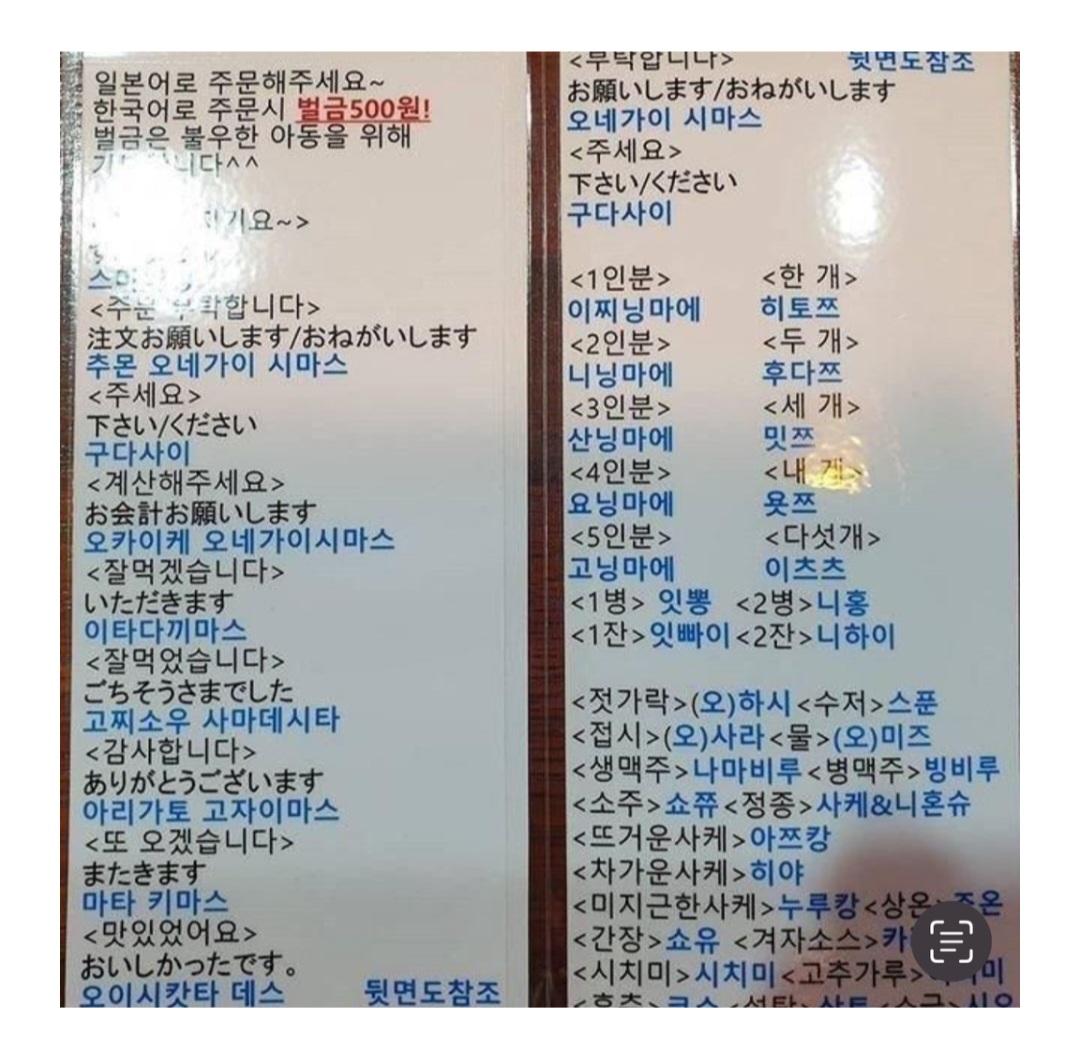 일본어로 주문해주세요~
한국어로 주문시 벌금500원!
벌금은 불우한 아동을 위해
니다^^
기요~>
<주문 부탁합니다>
注文お願いします/おねがいします
추몬 오네가이 시마스
<주세요>
下さい/ください
구다사이
<계산해주세요>
お会計お願いします
오카이케 오네가이시마스
<잘먹겠습니다>
いただきます
이타다끼마스
<잘먹었습니다>
ごちそうさまでした
고찌소우 사마데시타
<감사합니다>
ありがとうございます
아리가토 고자이마스
<또 오겠습니다>
またきます
마타 키마스
<맛있었어요>
おいしかったです。
오이시캇타 데스 뒷면도참조
<부탁합니다> 뒷면도참조
お願いします/おねがいします
오네가이 시마스
<주세요>
下さい/ください
구다사이
<1인분> <한 개>
이찌닝마에 히토쯔
<2인분> <두 개>
니닝마에 후다쯔
<3인분> <세 개>
산닝마에 밋쯔
<4인분> <내 개>
요닝마에 욧쯔
<5인분> <다섯개>
고닝마에 이츠츠
<1병> 잇뽕 <2병>니홍
<1잔>잇빠이<2잔>니하이
<젓가락>(오)하시<수저>스푼
<접시>(오)사라<물>(오)미즈
<생맥주>나마비루<병맥주>빙비루
<소주>쇼쮸<정종>사케&니혼슈
<뜨거운사케>아쯔캉
<차가운사케>히야
<미지근한사케>누루캉<상온>죠온
<간장>쇼유 <겨자소스>카
<시치미>시치미<고추가루> 미